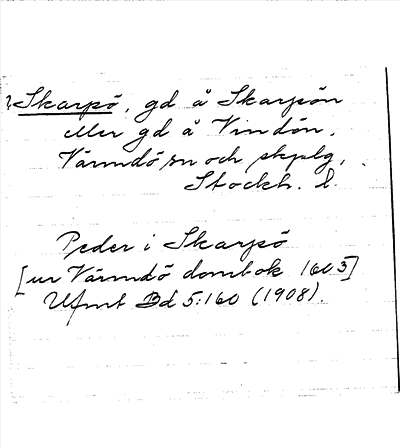 ? Skarpö, gd å Skarpön
eller gd å Vindön,
Värmdö sn och skplg,
Stockh. l.
Peder i Skarpö
[ur Värmdö dombok 1603]
Ufmt Bd 5:160 (1908).